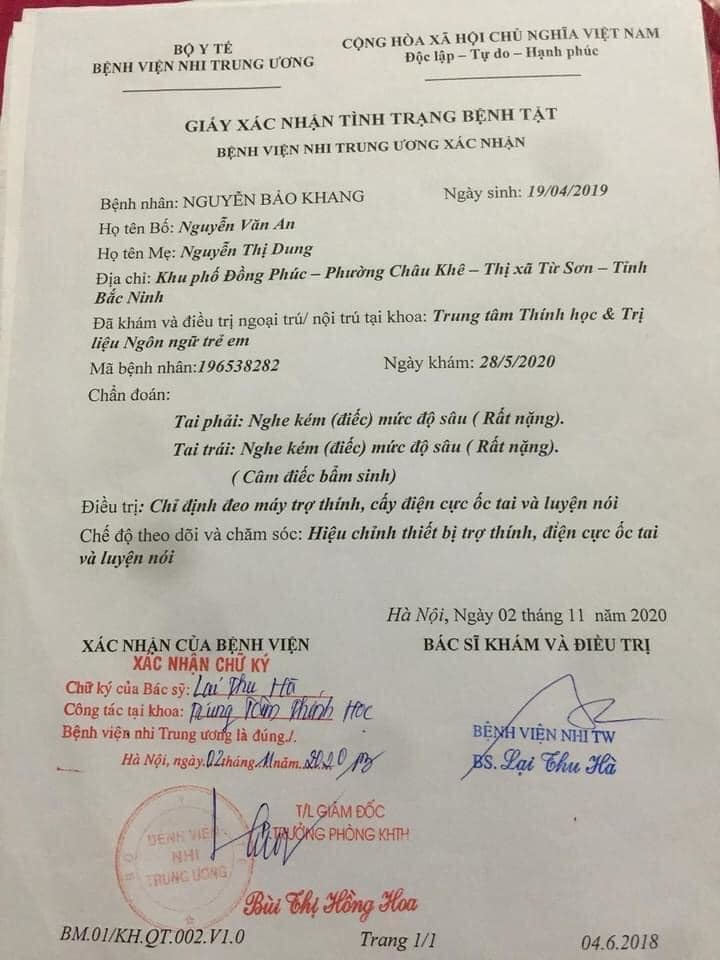 BỘ Y TẾ
BỆNH VIỆN NHI TRUNG ƯƠNG
CỘNG HÒA XÃ HỘI CHỦ NGHĨA VIỆT NAM
Độc lập – Tự do – Hạnh phúc
GIẤY XÁC NHẬN TÌNH TRẠNG BỆNH TẬT
BỆNH VIỆN NHI TRUNG ƯƠNG XÁC NHẬN
Bệnh nhân: NGUYỄN BẢO KHANG Ngày sinh: 19/04/2019
Họ tên Bố: Nguyễn Văn An
Họ tên Mẹ: Nguyễn Thị Dung
Địa chỉ: Khu phố Đồng Phúc – Phường Châu Khê – Thị xã Từ Sơn – Tỉnh
Bắc Ninh
Đã khám và điều trị ngoại trú/ nội trú tại khoa: Trung tâm Thính học & Trị
liệu Ngôn ngữ trẻ em
Mã bệnh nhân:196538282 Ngày khám: 28/5/2020
Chẩn đoán:
Tai phải: Nghe kém (điếc) mức độ sâu ( Rất nặng).
Tai trái: Nghe kém (điếc) mức độ sâu ( Rất nặng).
( Câm điếc bẩm sinh)
Điều trị: Chỉ định đeo máy trợ thính, cấy điện cực ốc tai và luyện nói
Chế độ theo dõi và chăm sóc: Hiệu chỉnh thiết bị trợ thính, điện cực ốc tai
và luyện nói
Hà Nội, Ngày 02 tháng 11 năm 2020
XÁC NHẬN CỦA BỆNH VIỆN
BÁC SĨ KHÁM VÀ ĐIỀU TRỊ
XÁC NHẬN CHỮ KÝ
Chữ ký của Bác sỹ: Lại Thu Hà
Công tác tại khoa: Trung Tâm Thính Học
Bệnh viện nhi Trung ương là đúng./.
Hà Nội, ngày.02tháng.11năm.2020
BỆNH VIỆN NHI TW
BS. Lại Thu Hà
T/L GIÁM ĐỐC
TRƯỞNG PHÒNG KHTH
BỆNH VIỆN
NHI
TRUNG ƯƠNG
Bùi Thị Hồng Hoa
BM.01/KH.QT.002.V1.0 Trang 1/1 04.6.2018